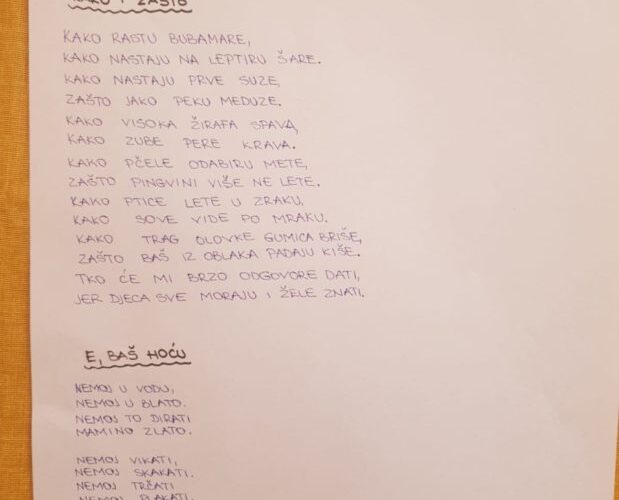 KAKO I ZAŠTO
KAKO RASTU BUBAMARE,
KAKO NASTAJU NA LEPTIRU ŠARE.
KAKO NASTAJU PRVE SUZE,
ZAŠTO JAKO PEKU MEDUZE.
KAKO VISOKA ŽIRAFA SPAVA,
KAKO ZUBE PERE KRAVA.
KAKO PČELE ODABIRU METE,
ZAŠTO PINGVINI VIŠE NE LETE.
KAKO PTICE LETE U ZRAKU,
KAKO SOVE VIDE PO MRAKU.
KAKO TRAG OLOVKE GUMICA BRIŠE,
ZAŠTO BAŠ IZ OBLAKA PADAJU KIŠE.
TKO ĆE MI BRZO ODGOVORE DATI,
JER DJECA SVE MORAJU I ŽELE ZNATI.
E, BAŠ HOĆU
NEMOJ U VODU,
NEMOJ U BLATO.
NEMOJ TO DIRATI
MAMINO ZLATO.
NEMOJ VIKATI,
NEMOJ SKAKATI.
NEMOJ TRČATI
NEMOJ PLAKATI.